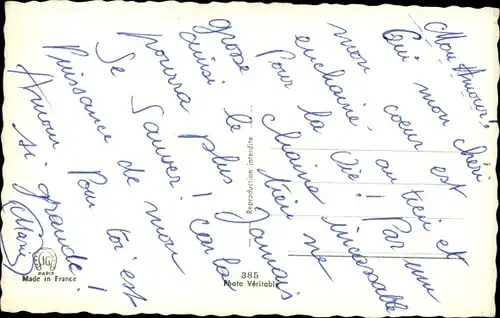 Mon Amour !
Oui mon chéri
mon coeur est
enchaîné au tien et
Pour la Vie ! Par une
grosse chaîne incassable
ainsi le tien ne
pourra plus jamais
se sauver ! car la
Puissance de mon
Amour Pour toi est
si grande !
Reproduction interdite
PARIS
Made in France
385
Photo Véritable